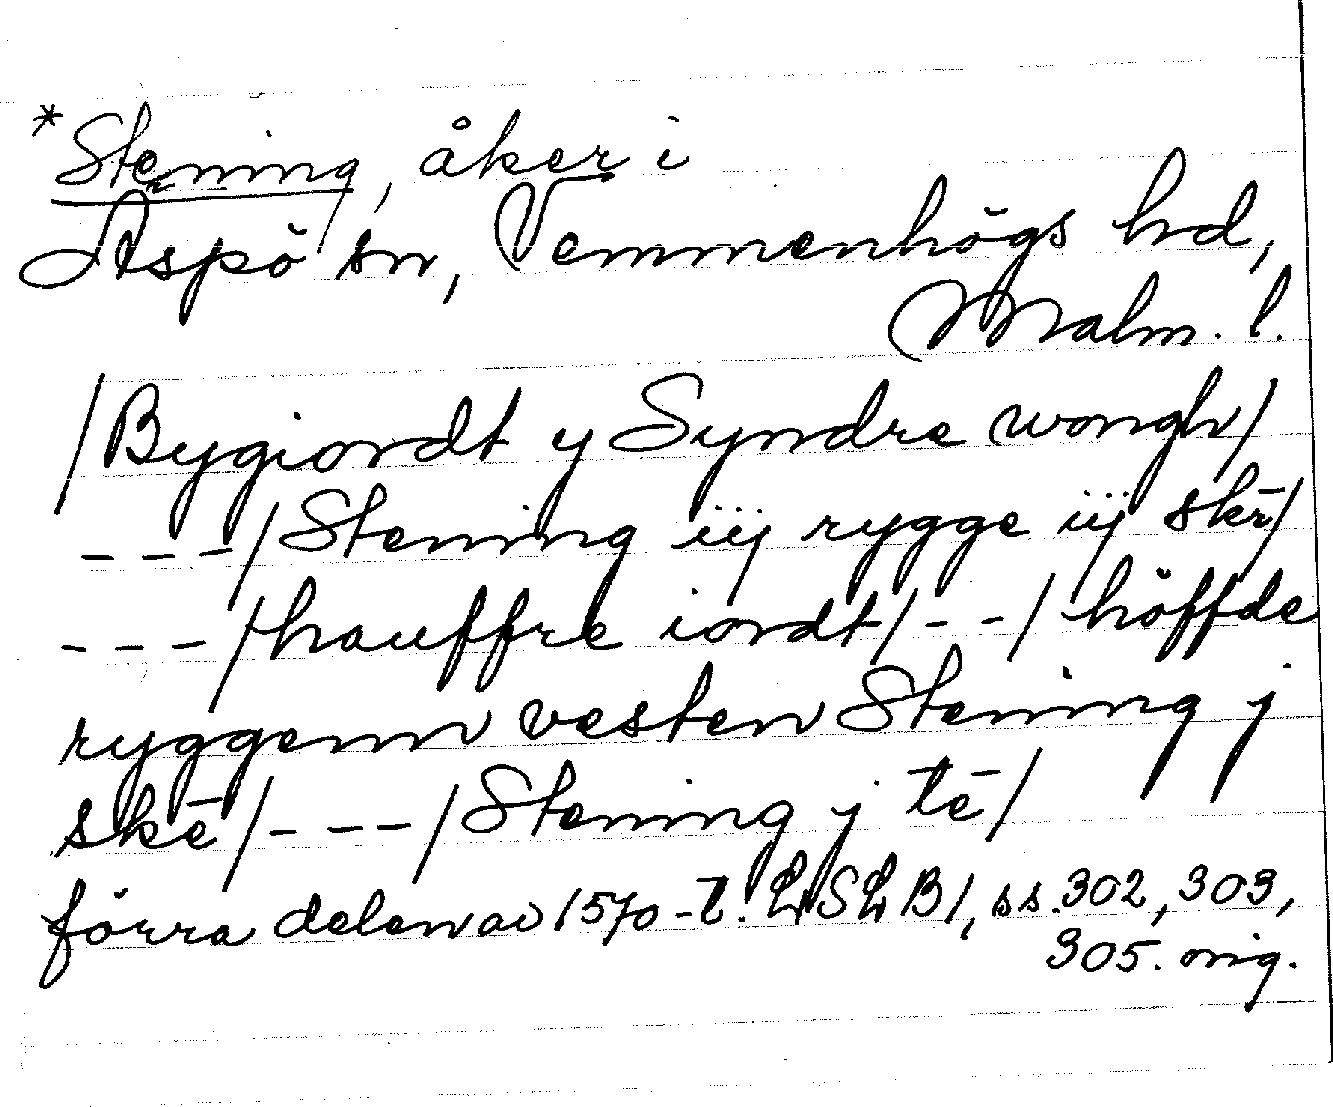 *Stening, åker i
Äspö sn, Vemmenhögs hd,
Malm. l.
/Bygiordt y Syndre wongh/
---/Stening iij rygge iij skē/
---/hauffre iordt/--/höffde
ryggenn vesten Stening j
skē/---/Stening j tē/
förra delen av 1570-t. LSLB1, ss. 302, 303,
305. orig.